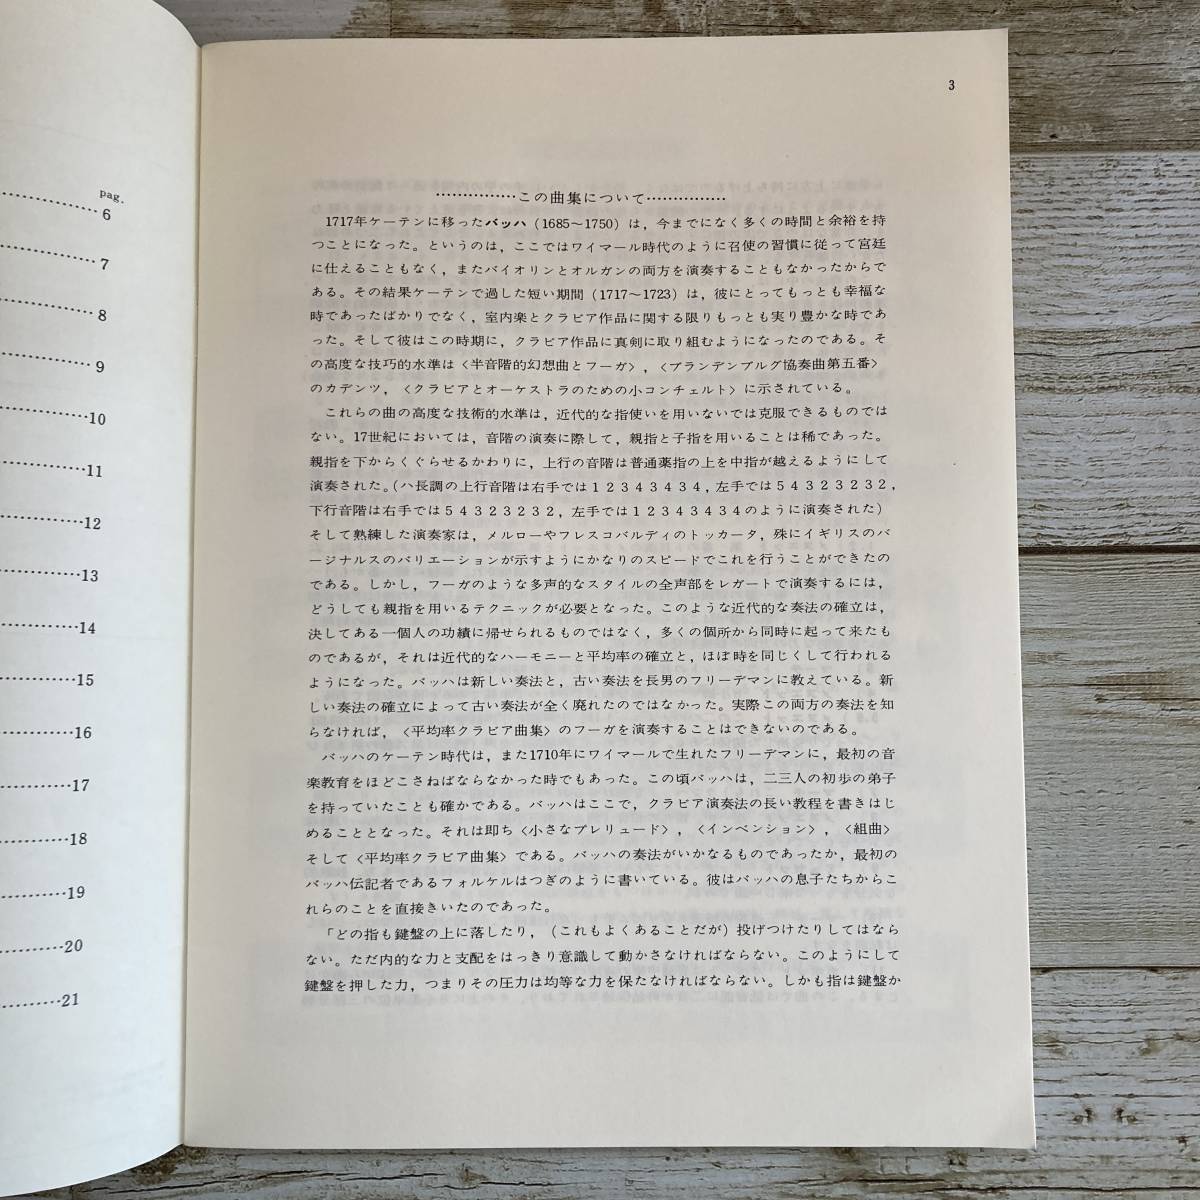 pag.
6
7
8
9
10
11
12
13
14
15
16
17
18
19
20
21
3
…………この曲集について…………
1717年ケーテンに移ったバッハ（1685～1750）は，今までになく多くの時間と余裕を持
つことになった。というのは，ここではワイマール時代のように召使の習慣に従って宮廷
に仕えることもなく，またバイオリンとオルガンの両方を演奏することもなかったからで
ある。その結果ケーテンで過した短い期間（1717～1723）は，彼にとってもっとも幸福な
時であったばかりでなく，室内楽とクラビア作品に関する限りもっとも実り豊かな時であ
った。そして彼はこの時期に，クラビア作品に真剣に取り組むようになったのである。そ
の高度な技巧的水準は〈半音階的幻想曲とフーガ〉，〈ブランデンブルグ協奏曲第五番〉
のカデンツ，〈クラビアとオーケストラのための小コンチェルト〉に示されている。
これらの曲の高度な技術的水準は，近代的な指使いを用いないでは克服できるものでは
ない。17世紀においては，音階の演奏に際して，親指と子指を用いることは稀であった。
親指を下からくぐらせるかわりに，上行の音階は普通薬指の上を中指が越えるようにして
演奏された。（ハ長調の上行音階は右手では１２３４３４３４，左手では５４３２３２３２，
下行音階は右手では５４３２３２３２，左手では１２３４３４３４のように演奏された）
そして熟練した演奏家は，メルローやフレスコバルディのトッカータ，殊にイギリスのバ
ージナルスのバリエーションが示すようにかなりのスピードでこれを行うことができたの
である。しかし，フーガのような多声的なスタイルの全声部をレガートで演奏するには，
どうしても親指を用いるテクニックが必要となった。このような近代的な奏法の確立は，
決してある一個人の功績に帰せられるものではなく，多くの個所から同時に起って来たも
のであるが，それは近代的なハーモニーと平均率の確立と，ほぼ時を同じくして行われる
ようになった。バッハは新しい奏法と，古い奏法を長男のフリーデマンに教えている。新
しい奏法の確立によって古い奏法が全く廃れたのではなかった。実際この両方の奏法を知
らなければ，〈平均率クラビア曲集〉のフーガを演奏することはできないのである。
バッハのケーテン時代は，また1710年にワイマールで生れたフリーデマンに，最初の音
楽教育をほどこさねばならなかった時でもあった。この頃バッハは，二三人の初歩の弟子
を持っていたことも確かである。バッハはここで，クラビア演奏法の長い教程を書きはじ
めることとなった。それは即ち〈小さなプレリュード〉，〈インベンション〉，〈組曲〉
そして〈平均率クラビア曲集〉である。バッハの奏法がいかなるものであったか，最初の
バッハ伝記者であるフォルケルはつぎのように書いている。彼はバッハの息子たちからこ
れらのことを直接きいたのであった。
「どの指も鍵盤の上に落したり，（これもよくあることだが）投げつけたりしてはなら
ない。ただ内的な力と支配をはっきり意識して動かさなければならない。このようにして
鍵盤を押した力，つまりその圧力は均等な力を保たなければならない。しかも指は鍵盤か